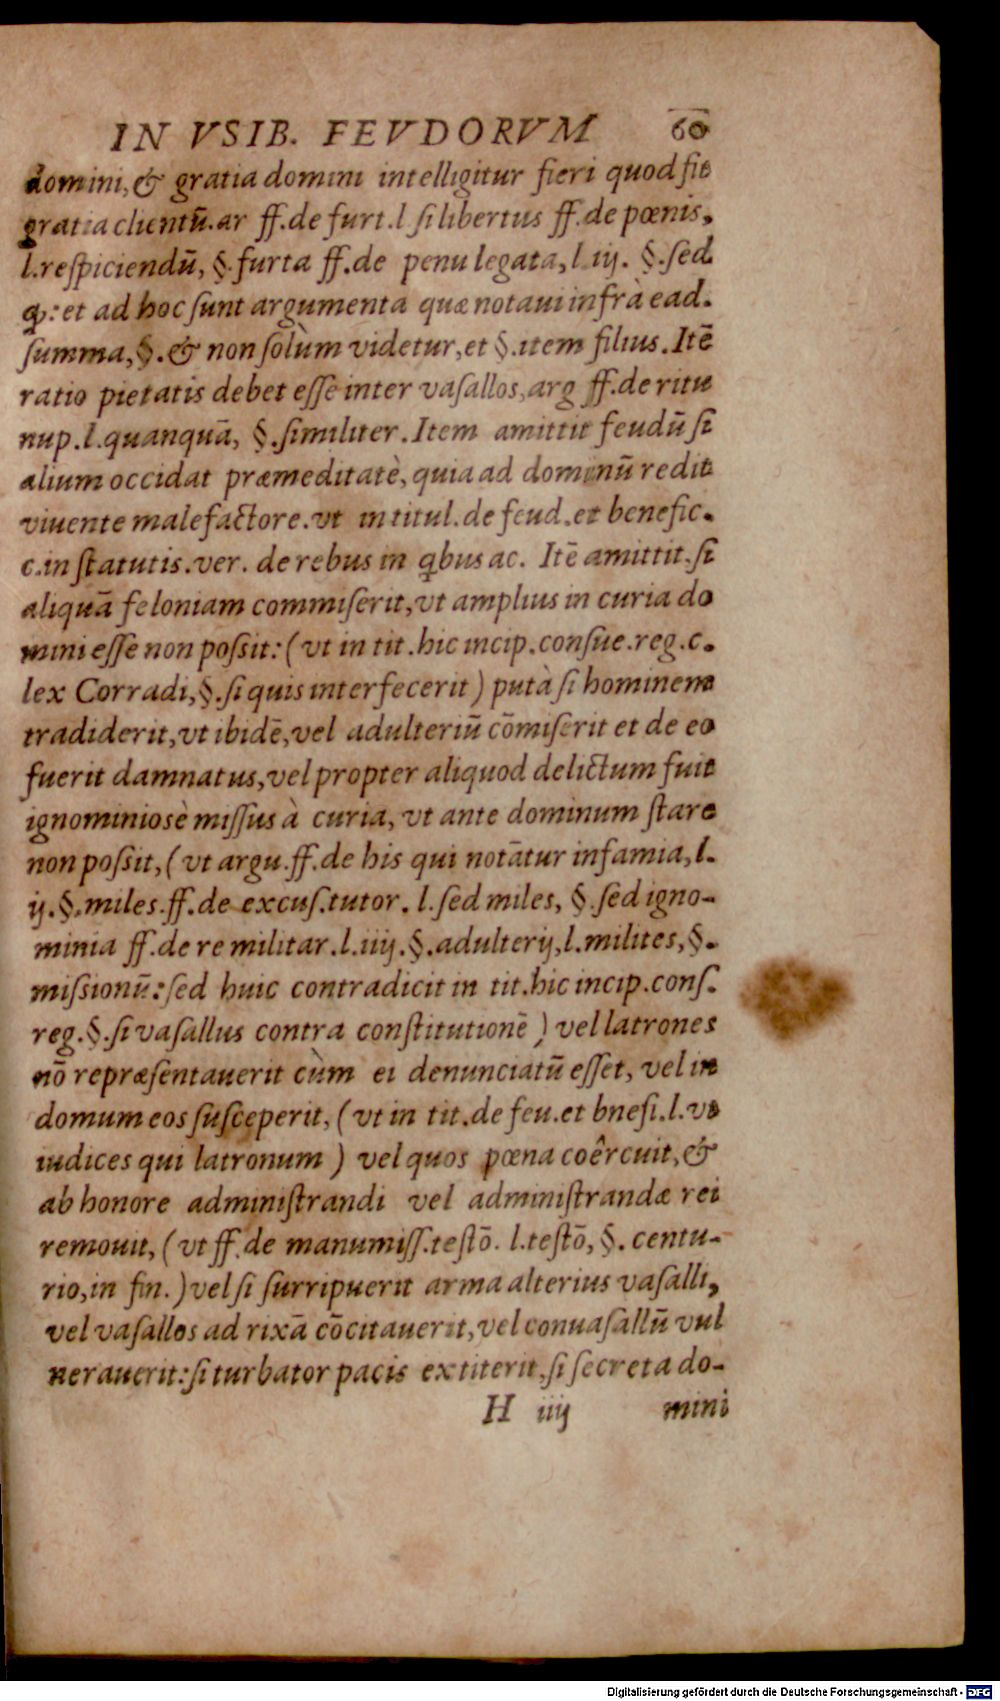 IN VSIB. FEVDORVM 60
domini, & gratia domini intelligitur fieri quod fit
gratia clientū. ar ff. de furt. l si libertus ff. de pœnis,
l. respiciendū, §. furta ff. de penu legata, l. iij. §. sed
q̨: et ad hoc sunt argumenta quæ notaui infrà ead.
summa, §. & non solùm videtur, et §. item filius. Itē
ratio pietatis debet esse inter vasallos, arg ff. de ritu
nup. l. quanquā, §. similiter. Item amittit feudū si
alium occidat præmeditatè, quia ad dominū redit
viuente malefactore. vt in titul. de feud. et benefic.
c. in statutis. ver. de rebus in q̨bus ac. Itē amittit, si
aliquā feloniam commiserit, vt amplius in curia do
mini esse non possit: (vt in tit. hic incip. consue. reg. c.
lex Corradi, §. si quis interfecerit) putà si hominem
tradiderit, vt ibidē, vel adulteriū cōmiserit et de eo
fuerit damnatus, vel propter aliquod delictum fuit
ignominiosè missus à curia, vt ante dominum stare
non possit, (vt argu. ff. de his qui notātur infamia, l.
ij. §. miles. ff. de excus. tutor. l. sed miles, §. sed igno-
minia ff. de re militar. l. iiij. §. adulterij, l. milites, §.
missionū: sed huic contradicit in tit. hic incip. cons.
reg. §. si vasallus contra constitutionē) vel latrones
nō repræsentauerit cùm ei denunciatū esset, vel in
domum eos susceperit, (vt in tit. de feu. et bnefi. l. vt
iudices qui latronum) vel quos pœna coêrcuit, &
ab honore administrandi vel administrandæ rei
remouit, (vt ff. de manumiss. testō. l. testō, §. centu-
rio, in fin.) vel si surripuerit arma alterius vasalli,
vel vasallos ad rixā cōcitauerit, vel conuasallū vul
nerauerit: si turbator pacis extiterit, si secreta do-
H iiij mini
Digitalisierung gefördert durch die Deutsche Forschungsgemeinschaft - DFG